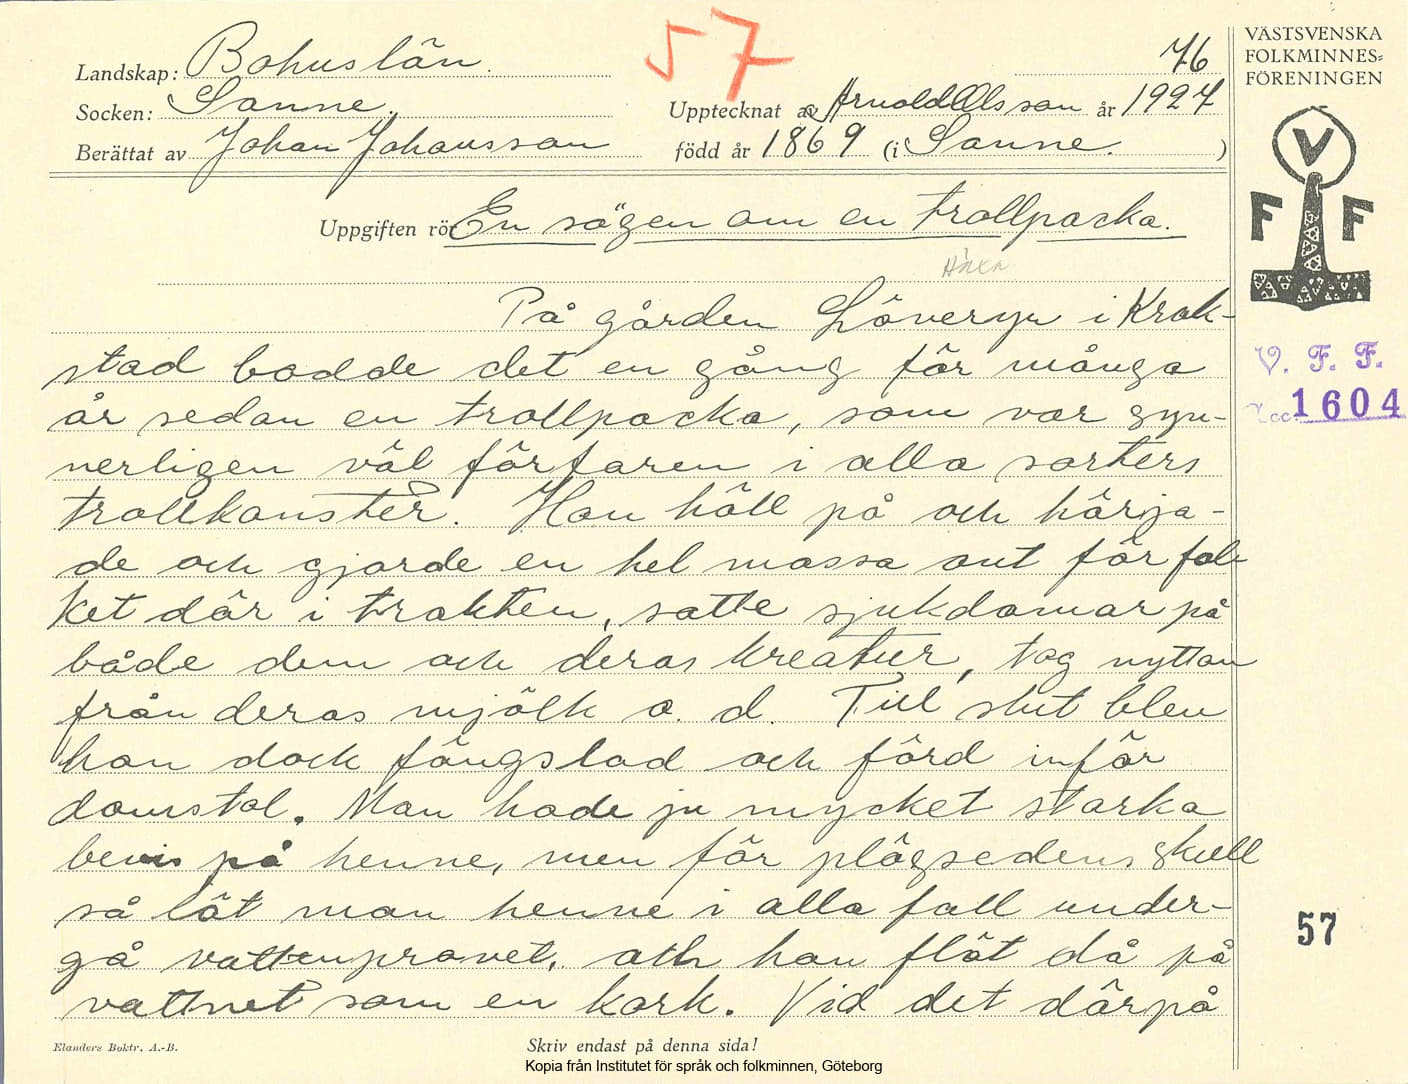 57
76
Landskap: Bohuslän.
Socken: Sanne.
Upptecknat av Arnold Olsson år 1927
Berättat av Johan Johansson
född år 1869 (i Sanne.)
Uppgiften rör En sägen om en trollpacka.
Häxa
På gården Löveryr i Krok-
stad bodde det en gång för många
år sedan en trollpacka, som var syn-
nerligen väl förfaren i alla sorters
trollkonster. Hon höll på och härja-
de och gjorde en hel massa ont för fol-
ket där i trakten, satte sjukdomar på
både dem och deras kreatur, tog nyttan
från deras mjölk o. d. Till slut blev
hon dock fängslad och förd inför
domstol. Man hade ju mycket starka
bevis på henne, men för plägsedens skull
så lät man henne i alla fall under-
gå vattenprovet. och hon flöt då på
vattnet som en kork. Vid det därpå
Elanders Boktr. A.-B.
Skriv endast på denna sida!
Kopia från Institutet för språk och folkminnen, Göteborg
VÄSTSVENSKA
FOLKMINNES-
FÖRENINGEN
V
F F
V. F. F.
acc. 1604
57